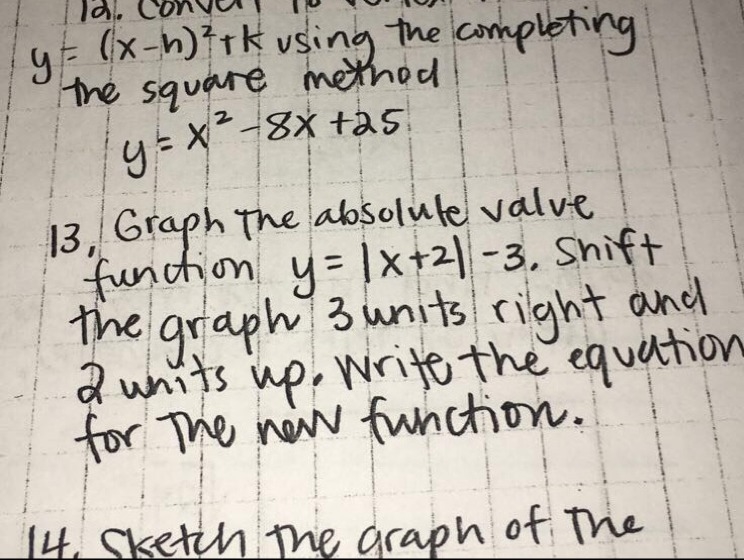 12. Convert to
y = (x-h)²+k using the completing
the square method
y = x² -8x +25
13, Graph the absolute value
function y = |x+2| -3. Shift
the graph 3 units right and
2 units up. Write the equation
for the new function.
14. Sketch the graph of the